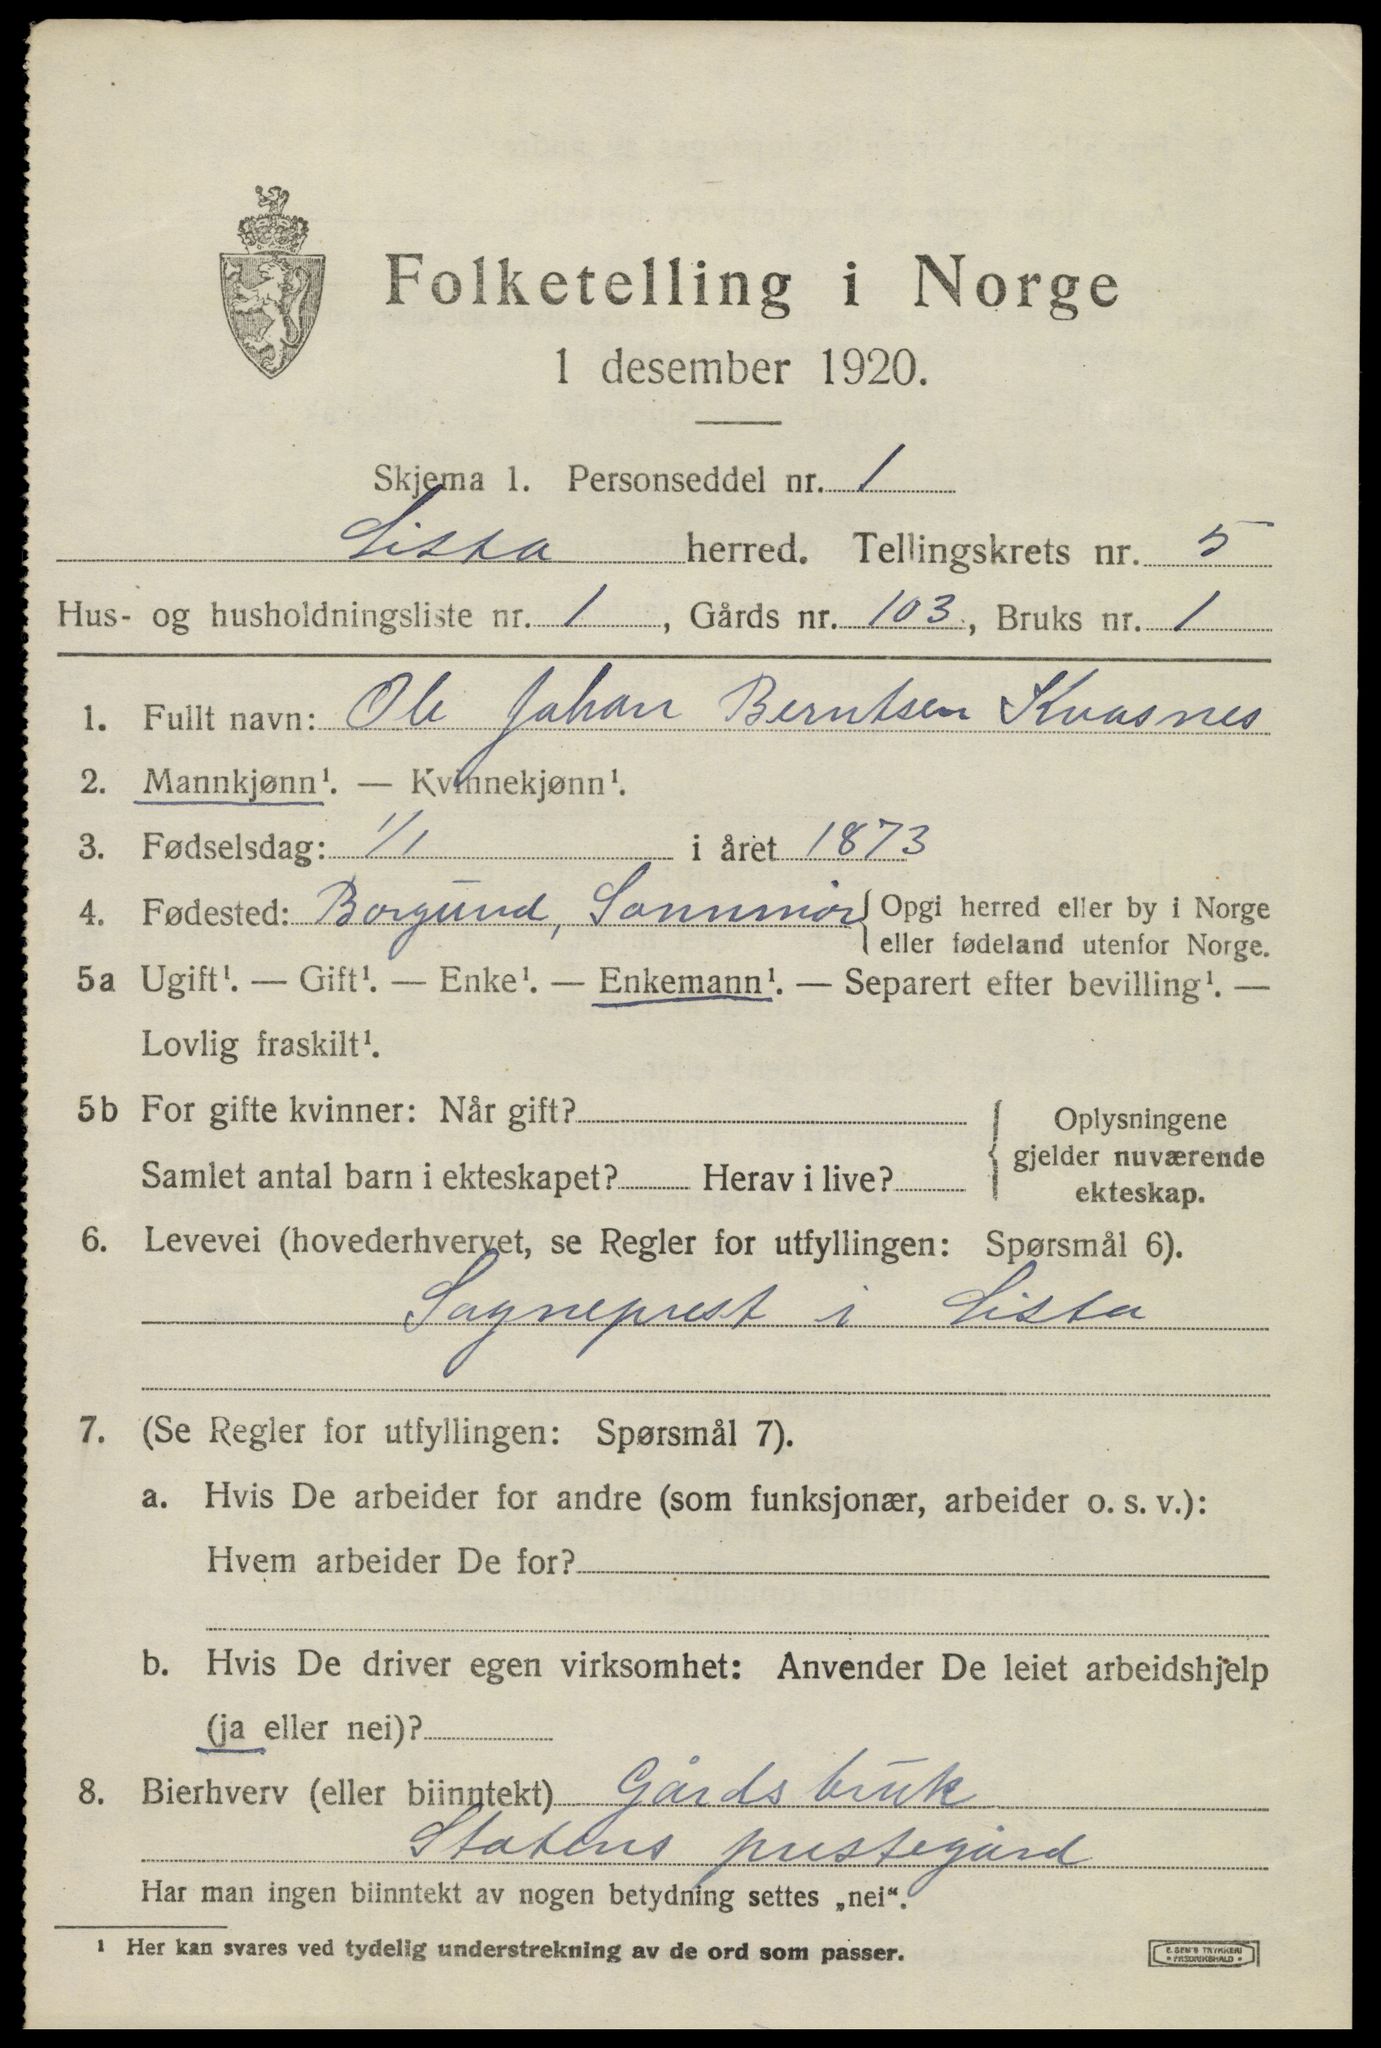 Folketelling i Norge
1 desember 1920.
Skjema 1. Personseddel nr. 1
Lista herred. Tellingskrets nr. 5
Hus- og husholdningsliste nr. 1, Gårds nr. 103, Bruks nr. 1
1. Fullt navn: Ole Johan Berntsen Kvasnes
2. Mannkjønn¹. — Kvinnekjønn¹.
3. Fødselsdag: 1/1 i året 1873
4. Fødested: Borgund, Sønnmør {Opgi herred eller by i Norge
eller fødeland utenfor Norge.
5a Ugift¹. — Gift¹. — Enke¹. — Enkemann¹. — Separert efter bevilling¹. —
Lovlig fraskilt¹.
5b For gifte kvinner: Når gift?
Samlet antal barn i ekteskapet? Herav i live?
{Oplysningene
gjelder nuværende
ekteskap.
6. Levevei (hovederhvervet, se Regler for utfyllingen: Spørsmål 6).
Sogneprest i Lista
7. (Se Regler for utfyllingen: Spørsmål 7).
a. Hvis De arbeider for andre (som funksjonær, arbeider o. s. v.):
Hvem arbeider De for?
b. Hvis De driver egen virksomhet: Anvender De leiet arbeidshjelp
(ja eller nei)?
8. Bierhverv (eller biinntekt) Gårdsbruk
Statens prestegård
Har man ingen biinntekt av nogen betydning settes „nei“.
¹ Her kan svares ved tydelig understrekning av de ord som passer.
E. SEM'S TRYKKERI
• FREDRIKSHALD •